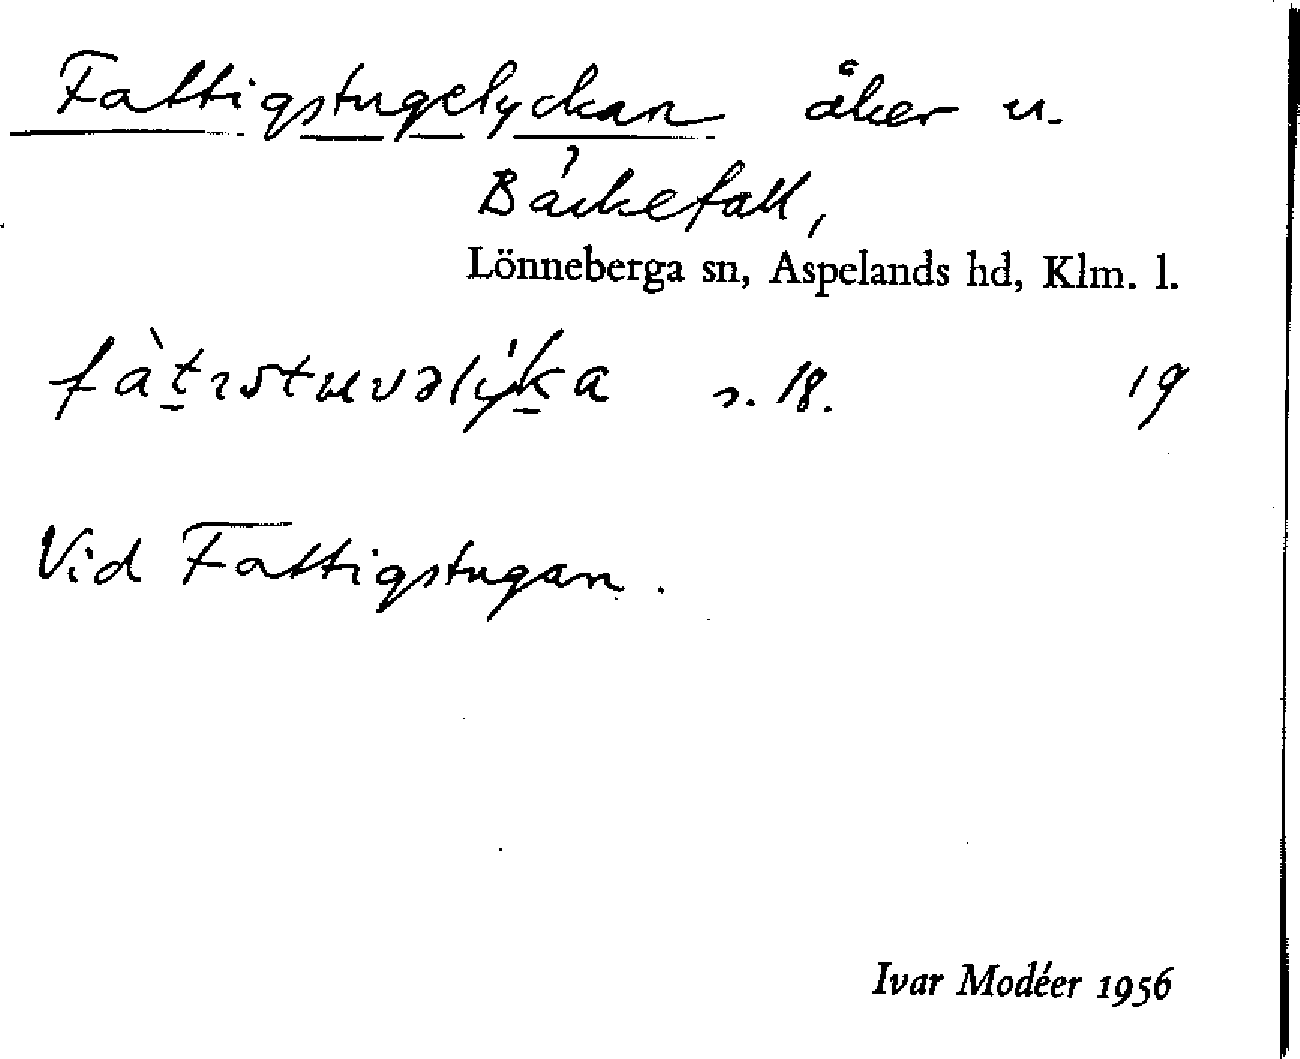 Fattigstugelyckan åker u.
Bäckefall,
Lönneberga sn, Aspelands hd, Klm. l.
fàt̠ɪstuvəlýk̠a s. 18. 19
Vid Fattigstugan.
Ivar Modéer 1956